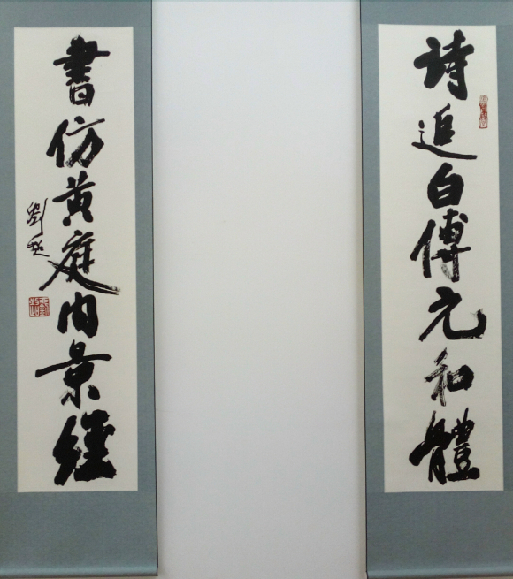 詩追白傅元和體
書仿黄庭内景經